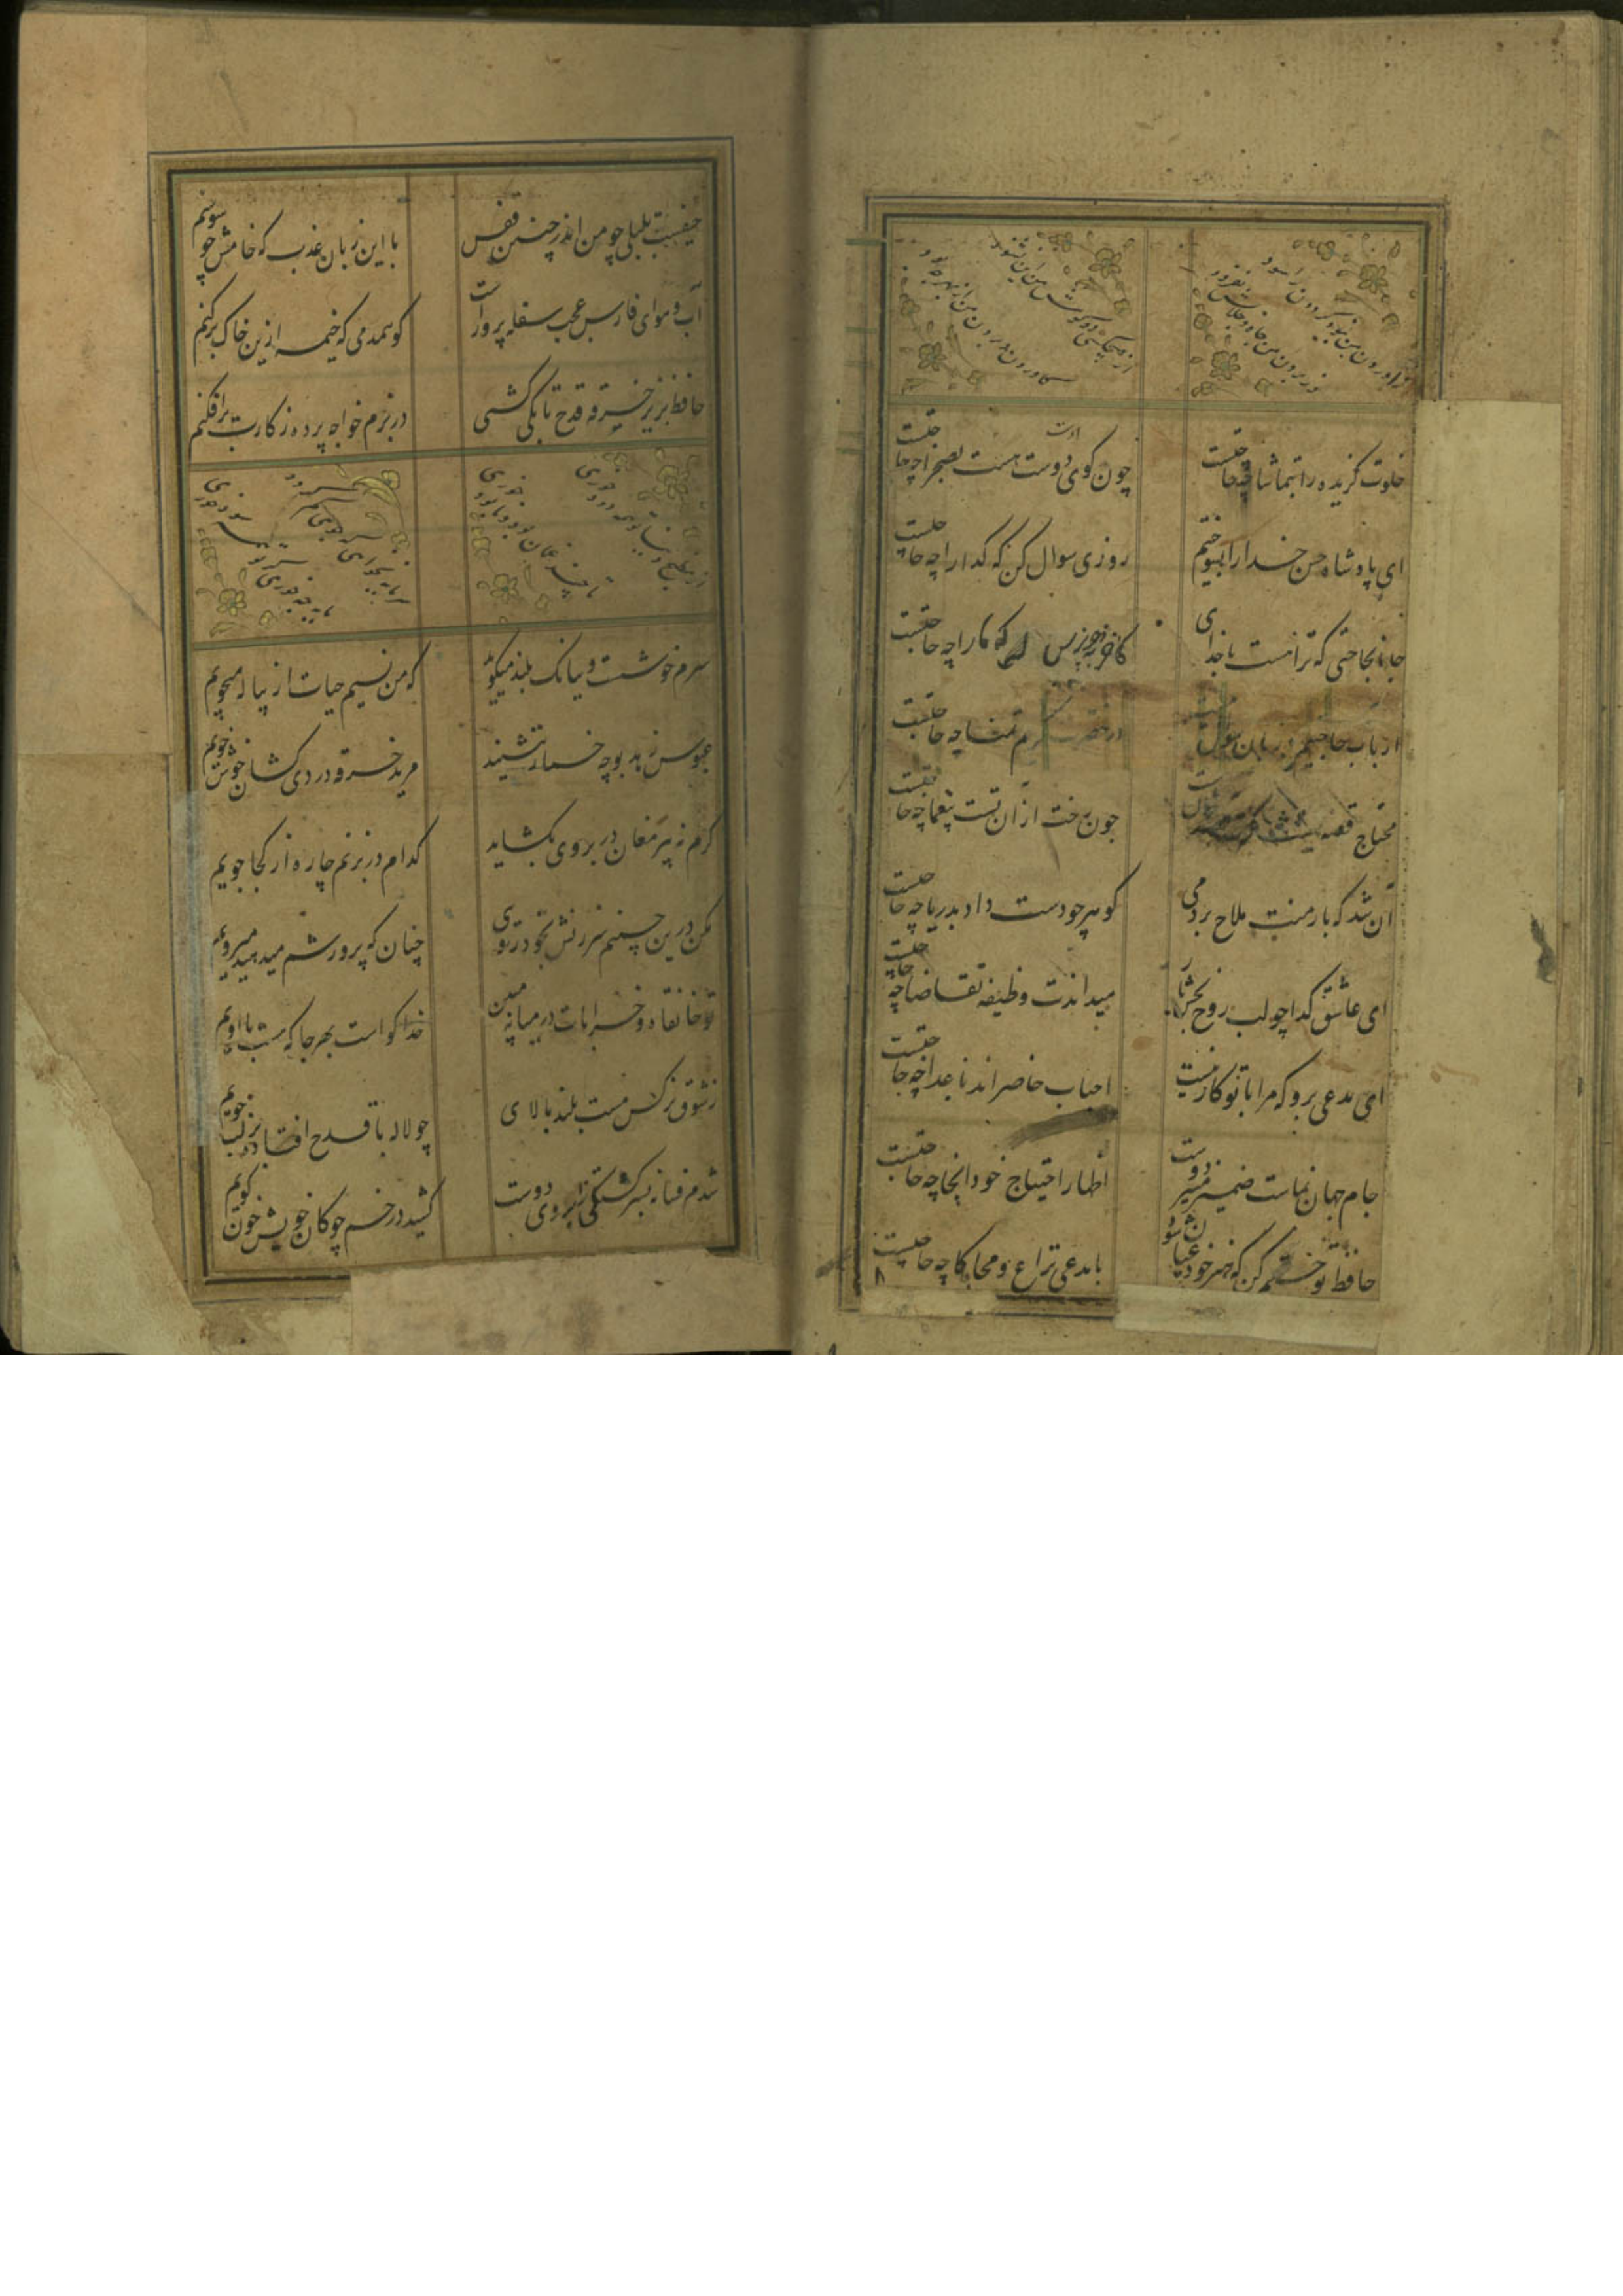 از آوردن من نبود گردون را سود
وز بردن من جاه و جلالش نفزود
از هیچکسی دو گوش من این نشنود
کاوردن و بردن من از بهر چه بود
خلوت گزیده را بتماشا چه حاجتست چون کوی دوست هست بصحرا چه حاجتست
ای پادشاه حسن خدا را بسوختیم روزی سوال کن که گدا را چه حاجتست
جانا بحاجتی که ترا هست با خدای که ما را چه حاجتست
ارباب حاجتیم و زبان سوال نیست در حضرت کریم تمنا چه حاجتست
محتاج قصه نیست چون رخت ازان تست بیغما چه حاجتست
آن شد که بار منت ملاح بردمی گوهر چو دست داد بدریا چه حاجتست
ای عاشق گدا چو لب روح بخش یار میداندت وظیفه تقاضا چه حاجتست
ای مدعی برو که مرا با تو کار نیست احباب حاضراند باعدا چه حاجتست
جام جهان نماست ضمیر منیر دوست اظهار احتیاج خود آنجا چه حاجتست
حافظ تو ختم کن که هنر خود عیان شود با مدعی نزاع و محاکا چه حاجتست
۸
حیفست بلبلی چو من اندر چنین قفس با این زبان عذب که خامش چو سوسنم
آب و هوای فارس عجب سفله پرور است کو همدمی که خیمه ازین خاک برکنم
حافظ بزیر خرقه قدح تا بکی کشی در بزم خواجه پرده ز کارت برافکنم
از مطبخ دنیا تو همه دود خوری
تا چند غمان بود و نابود خوری
سرم خوشست و ببانک بلند میکوید که من نسیم حیات از پیاله میجویم
عبوس زهد بوجه خمار ننشیند مرید خرقه دردی کشان خوش خویم
گرم نه پیر مغان در بروی بگشاید کدام در بزنم چاره از کجا جویم
مکن درین چمنم سرزنش بخود رویی چنان که پرورشم میدهند میرویم
تو خانقاه و خرابات در میانه مبین خدا گواست بهر جا که هست با اویم
ز شوق نرکس مست بلند بالای چو لاله با قدح افتاده بر لب جویم
شدم فسانه بسرگشتگی ز ابروی دوست کشید در خم چوگان خویش چون گویم